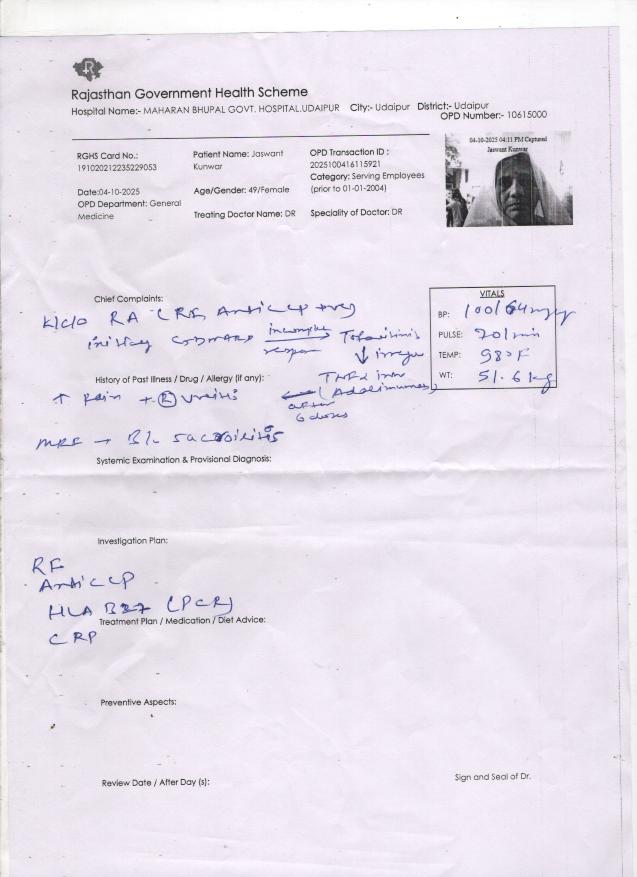 Rajasthan Government Health Scheme
Hospital Name:- MAHARAN BHUPAL GOVT. HOSPITAL,UDAIPUR City:- Udaipur District:- Udaipur
OPD Number:- 10615000
RGHS Card No.:
191020212235229053
Date:04-10-2025
OPD Department: General
Medicine
Patient Name: Jaswant
Kunwar
Age/Gender: 49/Female
Treating Doctor Name: DR
OPD Transaction ID :
2025100416115921
Category: Serving Employees
(prior to 01-01-2004)
Speciality of Doctor: DR
04-10-2025 04:11 PM Captured
Jaswant Kunwar
Chief Complaints:
K/C/O RA (RF, Anti CCP +ve)
VITALS
BP: 100/64
PULSE: 70/min
TEMP: 98°F
WT: 51.6 kg
History of Past Illness / Drug / Allergy (if any):
↑ Pain + (R) Uveitis
(Adalimumab)
after
6 doses
MRI → B/L Sacroiliitis
Systemic Examination & Provisional Diagnosis:
Investigation Plan:
RF
Anti CCP
HLA B27 (PCR)
Treatment Plan / Medication / Diet Advice:
CRP
Preventive Aspects:
Review Date / After Day (s):
Sign and Seal of Dr.